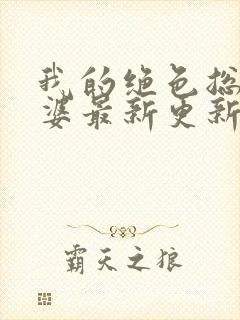 我的绝色总
婆最新更新
霸天之狼